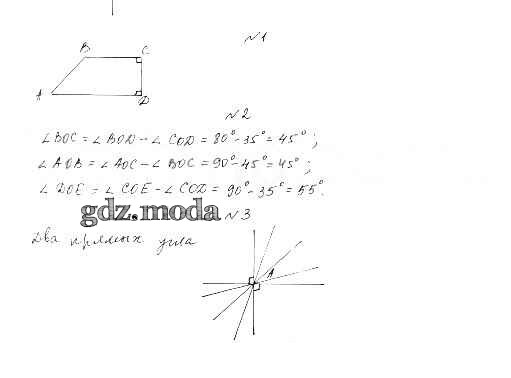 №1
B C
A D
№2
∠BOC = ∠BOD - ∠COD = 80° - 35° = 45°;
∠AOB = ∠AOC - ∠BOC = 90° - 45° = 45°;
∠DOE = ∠COE - ∠COD = 90° - 35° = 55°.
gdz.moda
№3
Два прямых угла
A